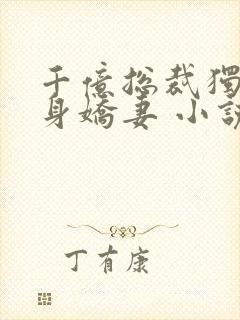 千億总裁獨
身嬌妻 小說
丁有康